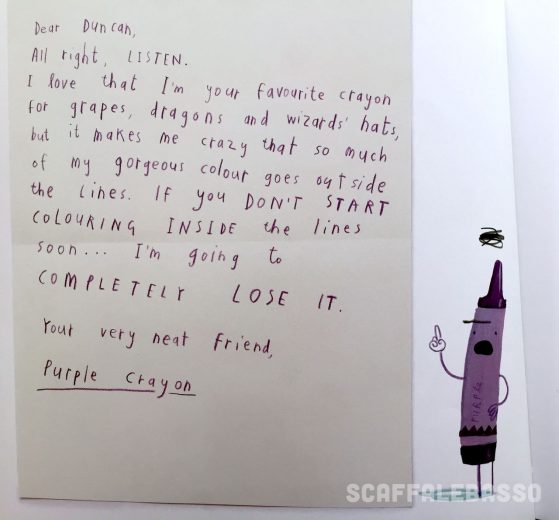 Dear Duncan,
All right, LISTEN.
I love that I'm your favourite crayon
for grapes, dragons and wizards' hats,
but it makes me crazy that so much
of my gorgeous colour goes outside
the lines. If you DON'T START
COLOURING INSIDE the lines
soon... I'm going to
COMPLETELY LOSE IT.
Your very neat friend,
Purple Crayon
PURPLE
SCAFFALEBASSO